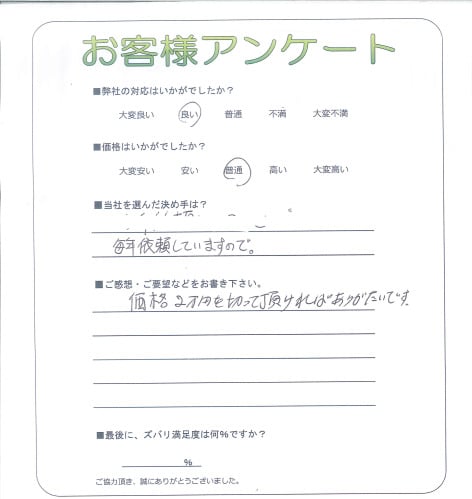 お客様アンケート
■弊社の対応はいかがでしたか？
大変良い 良い 普通 不満 大変不満
■価格はいかがでしたか？
大変安い 安い 普通 高い 大変高い
■当社を選んだ決め手は？
毎年依頼していますので。
■ご感想・ご要望などをお書き下さい。
価格2万円を切って頂ければありがたいです
■最後に、ズバリ満足度は何%ですか？
%
ご協力頂き、誠にありがとうございました。